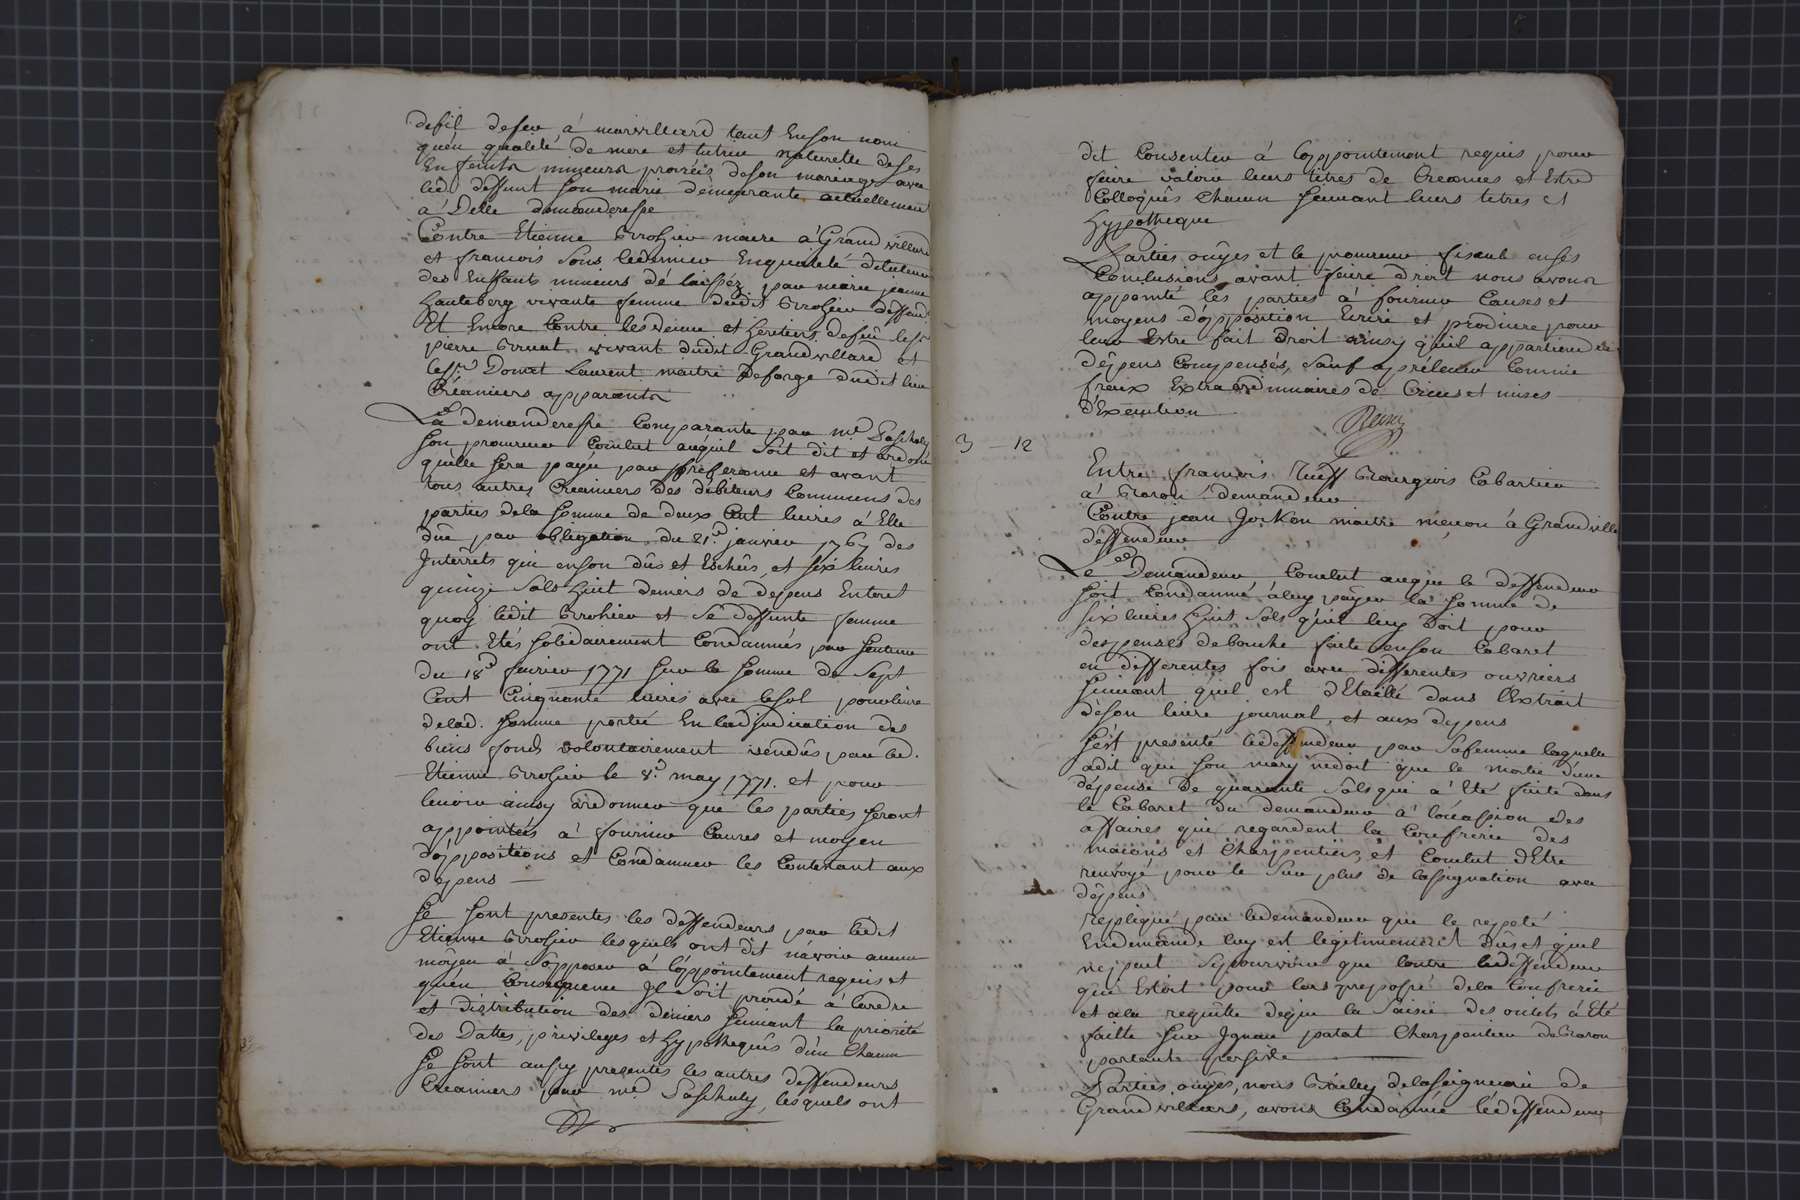 defil defeu à morvilliard tant Enson nom
qu'en qualité de mere et tutrice naturelle de ses
Enfants mineurs procréés de son mariage avec
led deffunt son marie demeurante actuellement
à Delle demanderesse
Contre Etienne maire à Grandvillard
et francois Enqualité de tuteur
des Enffants mineurs délaissés par marie jeanne
vivante femme dudit deffend
Et Encore Contre les veuve et heritiers defeu le sr
pierre vivant dudit Grandvillard et
le sr Donat Laurent maitre Deforge dudit lieu
Créanciers apparants
La demanderesse Comparante par me
son procureur Conclut aceq'uil soit dit et ordoné
qu'elle sera payée par préferance et avant
tous autres Créanciers des débiteurs Communs des
parties dela somme de deux Cent livres à Elle
dûe par obligation du 21e janvier 1767 des
Interrêts qui enson dûs et Echûs, et six livres
quinze sols huit deniers de depens Entout
quoy ledit et sé deffunte femme
ont Etés solidairement Condamnés par sentence
du 18e fevrier 1771 sur la somme de sept
Cent Cinquante livres avec le sol pour livre
delad. somme portée En ladjudication des
biens fonds volontairement vendus par led.
Etienne le 8e may 1771. et pour
ainsy ordonner que les parties seront
appointées à fournir Causes et moyen
d'oppositions et Condamner les Contestant aux
dépens
Se sont presentes les deffendeurs par ledit
Etienne lesquels ont dit n'avoir aucun
moyen à s'opposer à l'appointement requis et
qu'en Consequence Jl soit procedé à lordre
et distribution des deniers suivant la priorité
des Dattes, privileges et hypotheques d'un Chacun
Se sont aussy presentés les autres deffendeurs
Creanciers par me lesquels ont
dit Consentir à l'appointement requis pour
faire valoir leurs titres de Creances et Estre
Colloqués Chacun suivant leurs titres et
hypotheque
Parties ouÿes et le procureur fiscal enses
Conclusions avant faire droit nous avons
appointé les parties à fournir Causes et
moyens d'opposition Ecrire et produire pour
leur Estre fait Droit ainsy qu'il appartiendra
dépens Compensés, sauf à préléver Comme
fraix Extraordinnaires de Criées et mises
d'Execution
3 — 12
Entre francois Bourgeois Cabartier
à demandeur
Contre jean maitre mâcon à Grandville
deffendeur
Le Demandeur Conclut aceque le deffendeur
soit Condamné àluy payer la somme de
six livres huit sols q'uil luy Doit pour
despenses debouche faite enson Cabaret
en differentes fois avec differentes ouvriers
suivant qu'il est d'Etaillé dans l'Extrait
de son livre journal, et aux depens
S'ést presenté ledeffendeur par Safemme laquelle
adit que son mary nedoit que le moitié d'une
dépense de quarante sols qui a Eté faite dans
le Cabaret du demandeur à l'occasion des
affaires qui regardent la Confrerie des
macons et Charpentiers et Conclut d'Etre
renvoyé pour le surplus de lassignation avec
dépens
repliqué par ledemandeur que le repeté
Endemande luy est legitimement Dûs et qu'il
nepeut que Contre ledeffendeur
qui Estoit pour lors preposé dela Confrerie
et ala requête dequi la saisie des outils à Eté
faitte sur Jgnace Charpentier
parlante
Parties ouÿes, nous Bailey delaseigneurie de
Grandvillars, avons Condamné lédeffendeur